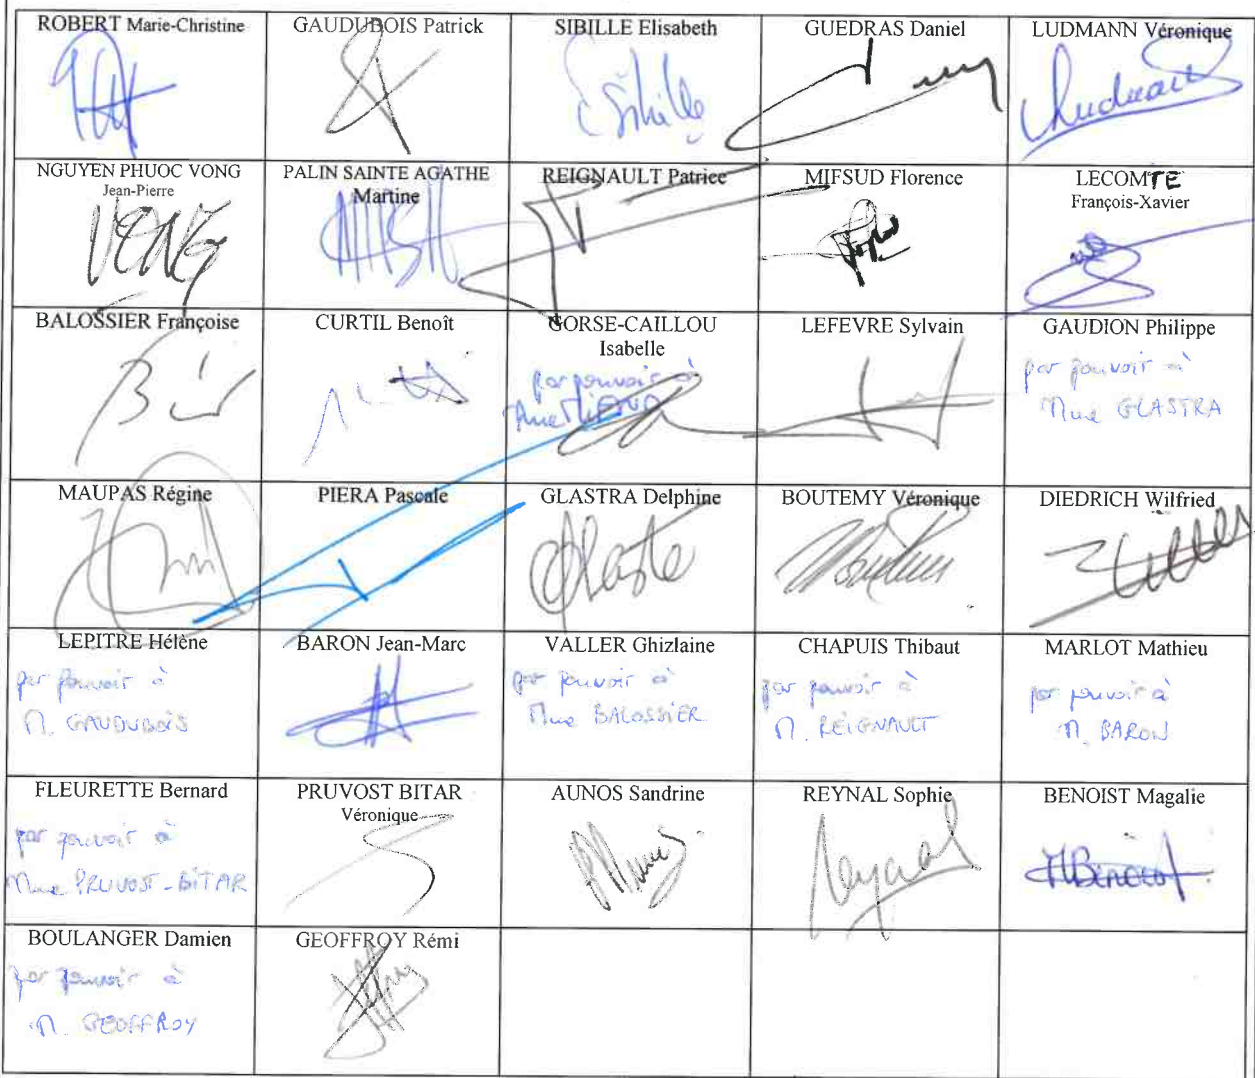 ROBERT Marie-Christine
GAUDUBOIS Patrick
SIBILLE Elisabeth
GUEDRAS Daniel
LUDMANN Véronique
Sibille
NGUYEN PHUOC VONG
Jean-Pierre
VONG
PALIN SAINTE AGATHE
Martine
REIGNAULT Patrice
MIFSUD Florence
LECOMTE
François-Xavier
BALOSSIER Françoise
CURTIL Benoît
GORSE-CAILLOU
Isabelle
par pouvoir à
LEFEVRE Sylvain
GAUDION Philippe
par pouvoir à
Mme GLASTRA
MAUPAS Régine
PIERA Pascale
GLASTRA Delphine
BOUTEMY Véronique
DIEDRICH Wilfried
LEPITRE Hélène
par pouvoir à
M. GAUDUBOIS
BARON Jean-Marc
VALLER Ghizlaine
par pouvoir à
Mme BALOSSIER
CHAPUIS Thibaut
par pouvoir à
M. REIGNAULT
MARLOT Mathieu
par pouvoir à
M. BARON
FLEURETTE Bernard
par pouvoir à
Mme PRUVOST-BITAR
PRUVOST BITAR
Véronique
AUNOS Sandrine
REYNAL Sophie
Reynal
BENOIST Magalie
MBenoist
BOULANGER Damien
par pouvoir à
M. GEOFFROY
GEOFFROY Rémi